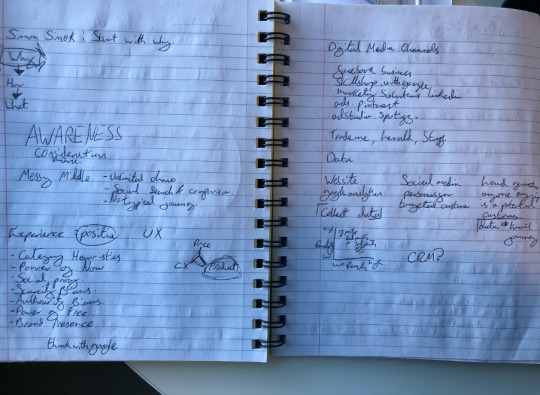 Simon Sinek: Start with why
Why
How
What
AWARENESS
Consideration
Messy Middle - Unlimited choice
- Social Search & comparison
- No typical journey.
Experience positive UX
Price
CX Product
- Category Heuristics
- Power of Now
- Social proof
- Scarcity Bias
- Authority Bias
- Power of Free
- Brand Presence
think with google
Digital Media Channels
facebook business
Skillshop.withgoogle
marketing Solutions linkedin
ads.pinterest
adstudio.spotify.
Trade me, herald, Stuff
Data
Website
google analytics
Collect data
Social media
targeted custom
anyone
is a potential
customer
data
journey
CRM?